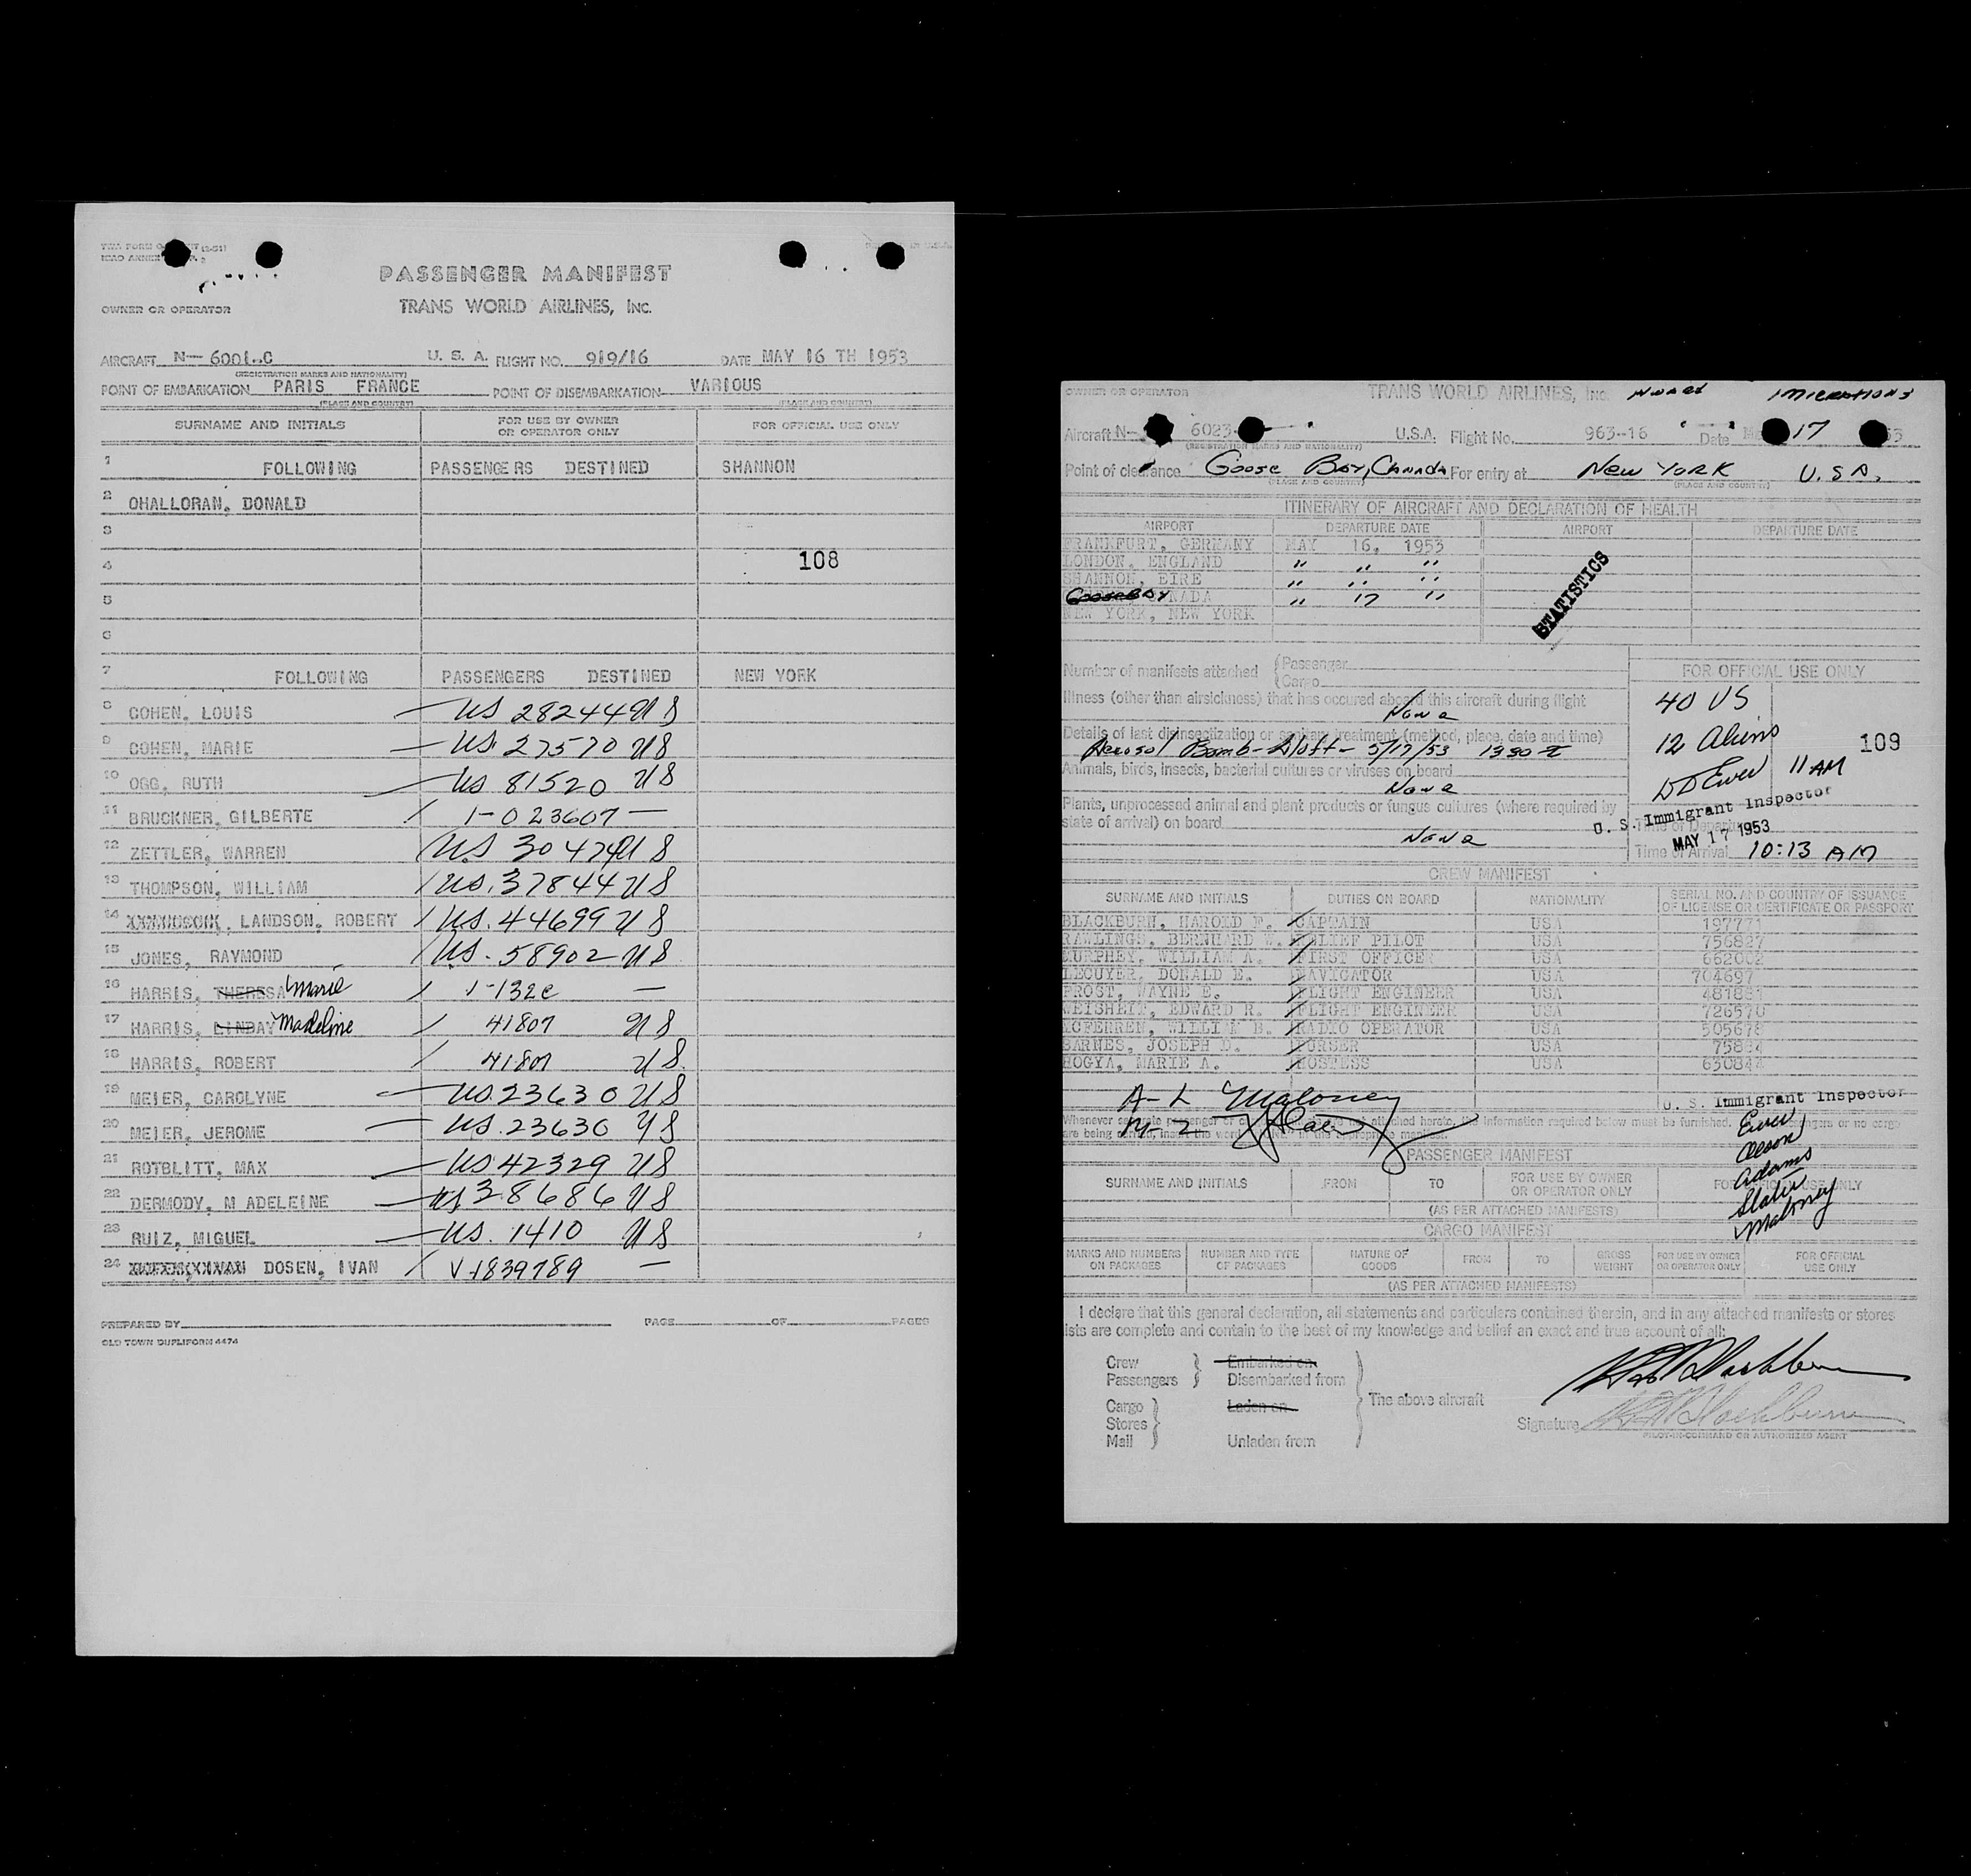 PASSENGER MANIFEST
OWNER OR OPERATOR TRANS WORLD AIRLINES, INC.
AIRCRAFT N- 6001-C U. S. A. FLIGHT NO. 919/16 DATE MAY 16 TH 1953
(REGISTRATION MARKS AND NATIONALITY)
POINT OF EMBARKATION PARIS FRANCE POINT OF DISEMBARKATION VARIOUS
(PLACE AND COUNTRY) (PLACE AND COUNTRY)
SURNAME AND INITIALS FOR USE BY OWNER OR OPERATOR ONLY FOR OFFICIAL USE ONLY
1 FOLLOWING PASSENGERS DESTINED SHANNON
2 OHALLORAN, DONALD
3
4 108
5
6
7 FOLLOWING PASSENGERS DESTINED NEW YORK
8 COHEN, LOUIS US 28244 US
9 COHEN, MARIE US 27570 US
10 OGG, RUTH US 81520 US
11 BRUCKNER, GILBERTE 1-023607 —
12 ZETTLER, WARREN US 30474 US
13 THOMPSON, WILLIAM US. 37844 US
14 LANDSON, ROBERT US. 44699 US
15 JONES, RAYMOND US. 58902 US
16 HARRIS, THERESA Marie 1-132c —
17 HARRIS, LINDAY Madeline 41807 US
18 HARRIS, ROBERT 41807 US.
19 MEIER, CAROLYNE US. 23630 US
20 MEIER, JEROME US. 23630 US
21 ROTBLITT, MAX US 42329 US
22 DERMODY, M ADELEINE US 38686 US
23 RUIZ, MIGUEL US. 1410 US
24 DOSEN, IVAN V-1839789 —
PREPARED BY PAGE OF PAGES
OLD TOWN DUPLIFORM 4474
OWNER OR OPERATOR TRANS WORLD AIRLINES, INC.
Aircraft N- 6023- U.S.A. Flight No. 963--16 Date 17 53
(REGISTRATION MARKS AND NATIONALITY)
Point of clearance Goose Bay, Canada For entry at New York U.S.A.
(PLACE AND COUNTRY) (PLACE AND COUNTRY)
ITINERARY OF AIRCRAFT AND DECLARATION OF HEALTH
AIRPORT DEPARTURE DATE AIRPORT DEPARTURE DATE
FRANKFURT, GERMANY MAY 16, 1953
LONDON, ENGLAND " " "
SHANNON, EIRE " " "
Goose Bay NADA " 17 "
NEW YORK, NEW YORK
STATISTICS
Number of manifests attached Passenger
Cargo
FOR OFFICIAL USE ONLY
Illness (other than airsickness) that has occured aboard this aircraft during flight
None
40 US
Details of last disinsectization or sanitary treatment (method, place, date and time)
Aerosol Bomb - Aloft - 5/17/53 1330 Z
12 Aliens
109
Animals, birds, insects, bacterial cultures or viruses on board
None
DD Ewer 11 AM
Plants, unprocessed animal and plant products or fungus cultures (where required by
state of arrival) on board
None
U. S. Immigrant Inspector
Time of Departure
MAY 17 1953
Time of Arrival 10:13 AM
CREW MANIFEST
SURNAME AND INITIALS DUTIES ON BOARD NATIONALITY SERIAL NO. AND COUNTRY OF ISSUANCE OF LICENSE OR CERTIFICATE OR PASSPORT
BLACKBURN, HAROLD F. CAPTAIN USA 197771
RAWLINGS, BERNHARD W. RELIEF PILOT USA 756827
MURPHEY, WILLIAM A. FIRST OFFICER USA 662002
LECUYER, DONALD E. NAVIGATOR USA 704697
FROST, WAYNE E. FLIGHT ENGINEER USA 481861
WEISHEIT, EDWARD R. FLIGHT ENGINEER USA 726570
MCFERREN, WILLIAM B. RADIO OPERATOR USA 505678
BARNES, JOSEPH D. PURSER USA
HOGYA, MARIE A. HOSTESS USA 630844
A-L Maloney
M-2
U. S. Immigrant Inspector
Whenever separate passenger or cargo attached hereto, the information required below must be furnished. passengers or no cargo
are being carried, insert the word in the appropriate manifest.
Ewer
Olson
Adams
Slater
Maloney
PASSENGER MANIFEST
SURNAME AND INITIALS FROM TO FOR USE BY OWNER OR OPERATOR ONLY FOR OFFICIAL USE ONLY
(AS PER ATTACHED MANIFESTS)
CARGO MANIFEST
MARKS AND NUMBERS ON PACKAGES NUMBER AND TYPE OF PACKAGES NATURE OF GOODS FROM TO GROSS WEIGHT FOR USE BY OWNER OR OPERATOR ONLY FOR OFFICIAL USE ONLY
(AS PER ATTACHED MANIFESTS)
I declare that this general declaration, all statements and particulars contained therein, and in any attached manifests or stores
ists are complete and contain to the best of my knowledge and belief an exact and true account of all:
Crew Embarked on
Passengers Disembarked from
Cargo Laden on The above aircraft
Stores
Mail Unladen from
Signature
PILOT-IN-COMMAND OR AUTHORIZED AGENT